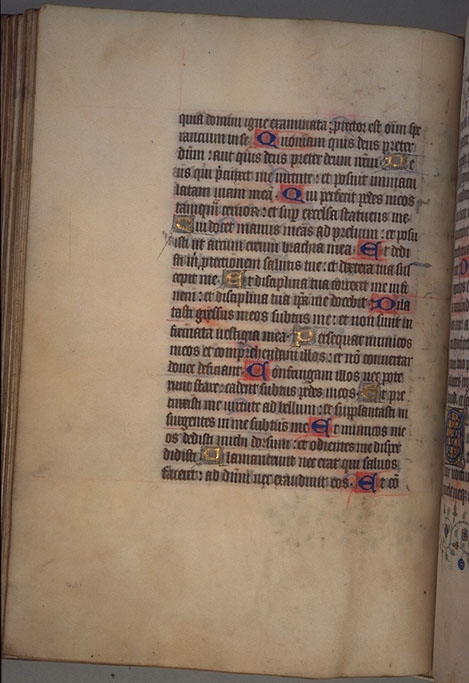 quia domini igne examinata: ptector est oim spe
rancium in se Quoniam quis deus preter
dnm: aut quis deus preter deum nrm. De
us qui pcinxit me virtute: et posuit immacu
latam viam mea. Qui perfecit pedes meos
tamqm cervor: et sup excelsa statuens me.
Qui docet manus meas ad prelium: et posu
isti ut arcum ereum brachia mea. Et dedi
sti m ptectionem salutis tue: et dextera tua sus
cepit me. Et disciplina tua correxit me in fi
nem: et disciplina tua ipa me docebit. Dila
tasti gressus meos subtus me: et non sunt in
firmata vestigia mea. Persequar inimicos
meos et comprehendam illos: et no convertar
donec deficiant. Confringam illos nec pote
runt stare: cadent subtus pedes meos. Et pre
cinxisti me virtute ad bellum: et supplantasti in
surgentes in me subtus me Et inimicos me
os dedisti michi dorsum: et odientes me dispe
didisti. Clamaverunt nec erat qui salvos
faceret: ad dnm nec exaudivit eos. Et co